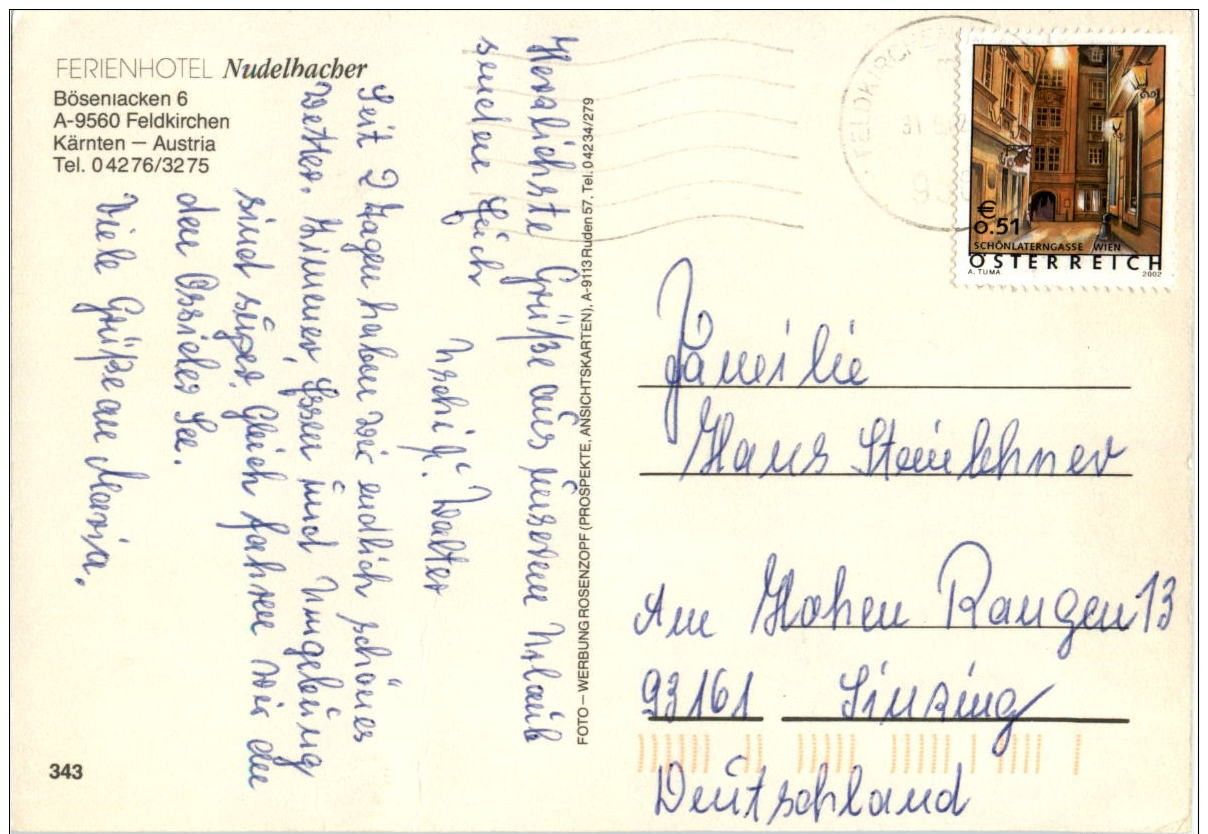 FERIENHOTEL Nudelbacher
Bösenlacken 6
A-9560 Feldkirchen
Kärnten — Austria
Tel. 0 42 76/32 75
Herzlichste Grüße aus unserem Urlaub
senden Euch
Uschi u. Walter
Seit 2 Tagen haben wir endlich schönes
Wetter. Zimmer, Essen und Umgebung
sind super. Gleich fahren wir an
den Ossicher See.
Viele Grüße an Maria.
343
FOTO – WERBUNG ROSENZOPF (PROSPEKTE, ANSICHTSKARTEN), A-9113 Ruden 57, Tel. 0 42 34/279
FELDKIRCHEN
€
0.51
SCHÖNLATERNGASSE WIEN
ÖSTERREICH
A. TUMA 2002
Familie
Hans Steinlehner
Am Hohen Rangen 13
93161 Sinzing
Deutschland